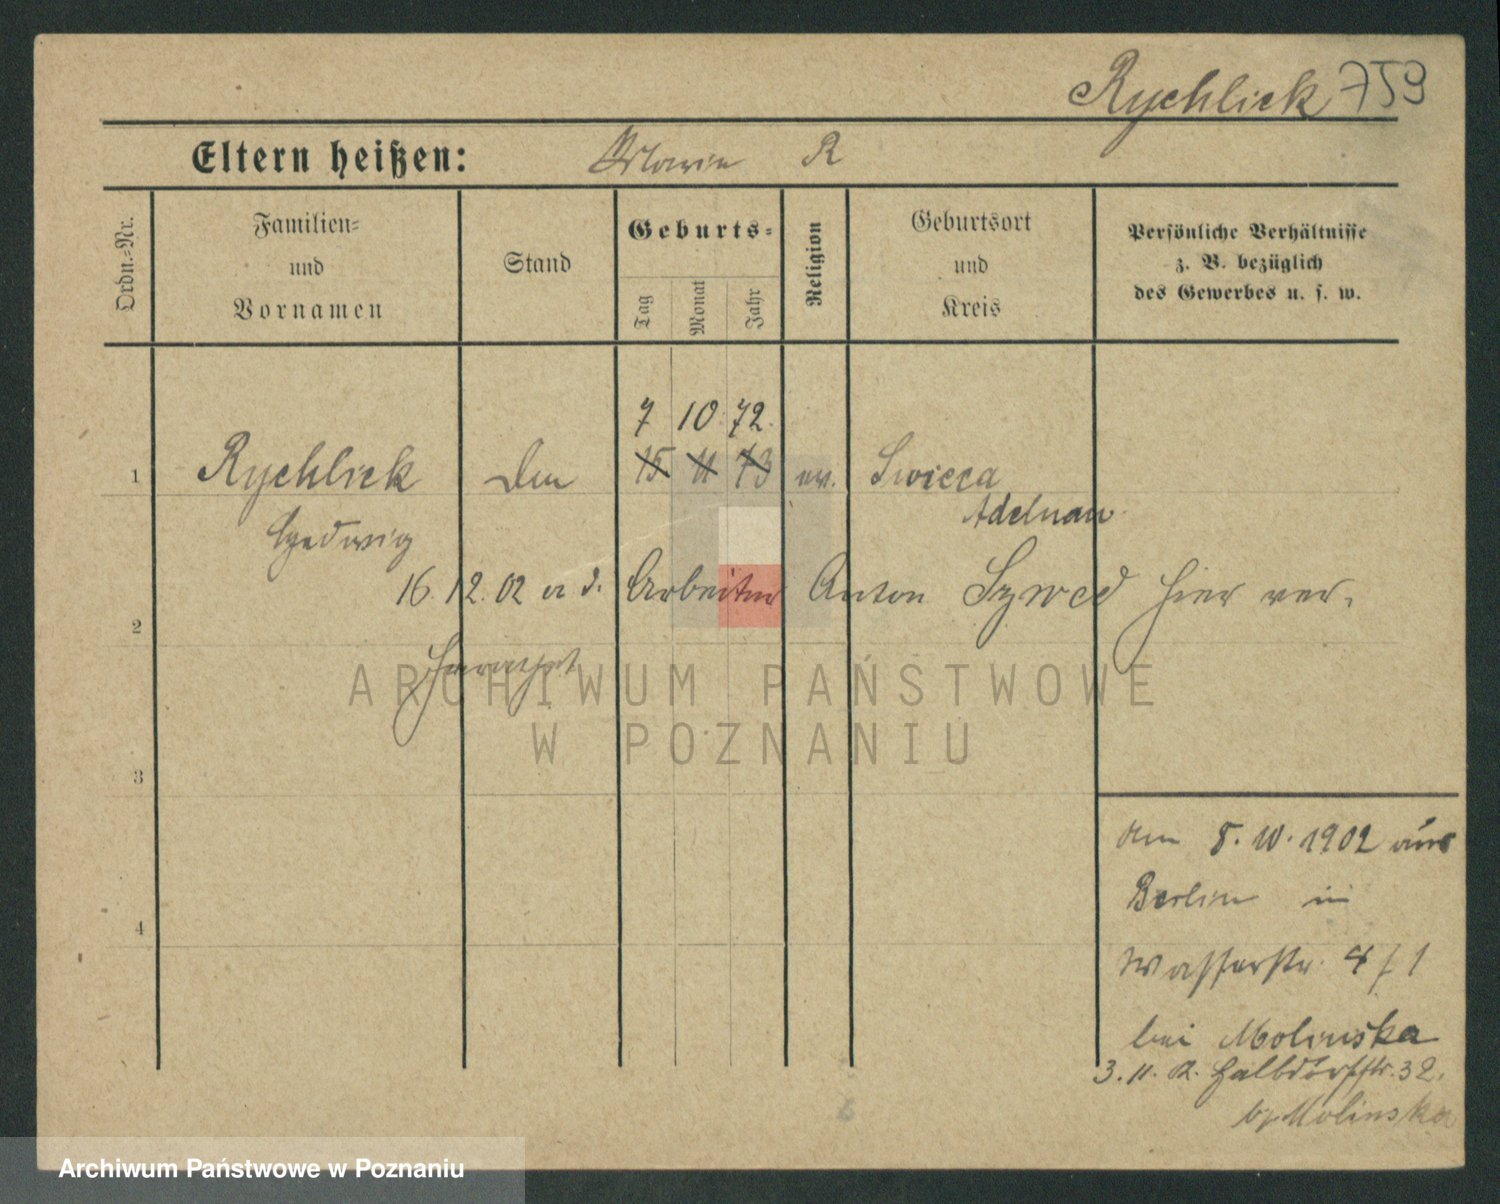 Rychlick 759
Eltern heißen: Marie R
Ordn.-Nr.
Familien-
und
Vornamen
Stand
Geburts-
Tag
Monat
Jahr
Religion
Geburtsort
und
Kreis
Persönliche Verhältnisse
z. B. bezüglich
des Gewerbes u. s. w.
7 10. 72.
1 Rychlick 15 11 73 ev. Swieca
Adelnau
Hedwig
16. 12. 02 a. d. Arbeiter Anton Szwed hier ver-
2
heirathet
3
am 8. 10. 1902 aus
Berlin in
4
Wasserstr. 4/1
bei Molinska
3. 11. Halbdorfstr. 32.
b/ Molinska
ARCHIWUM PAŃSTWOWE
W POZNANIU
Archiwum Państwowe w Poznaniu